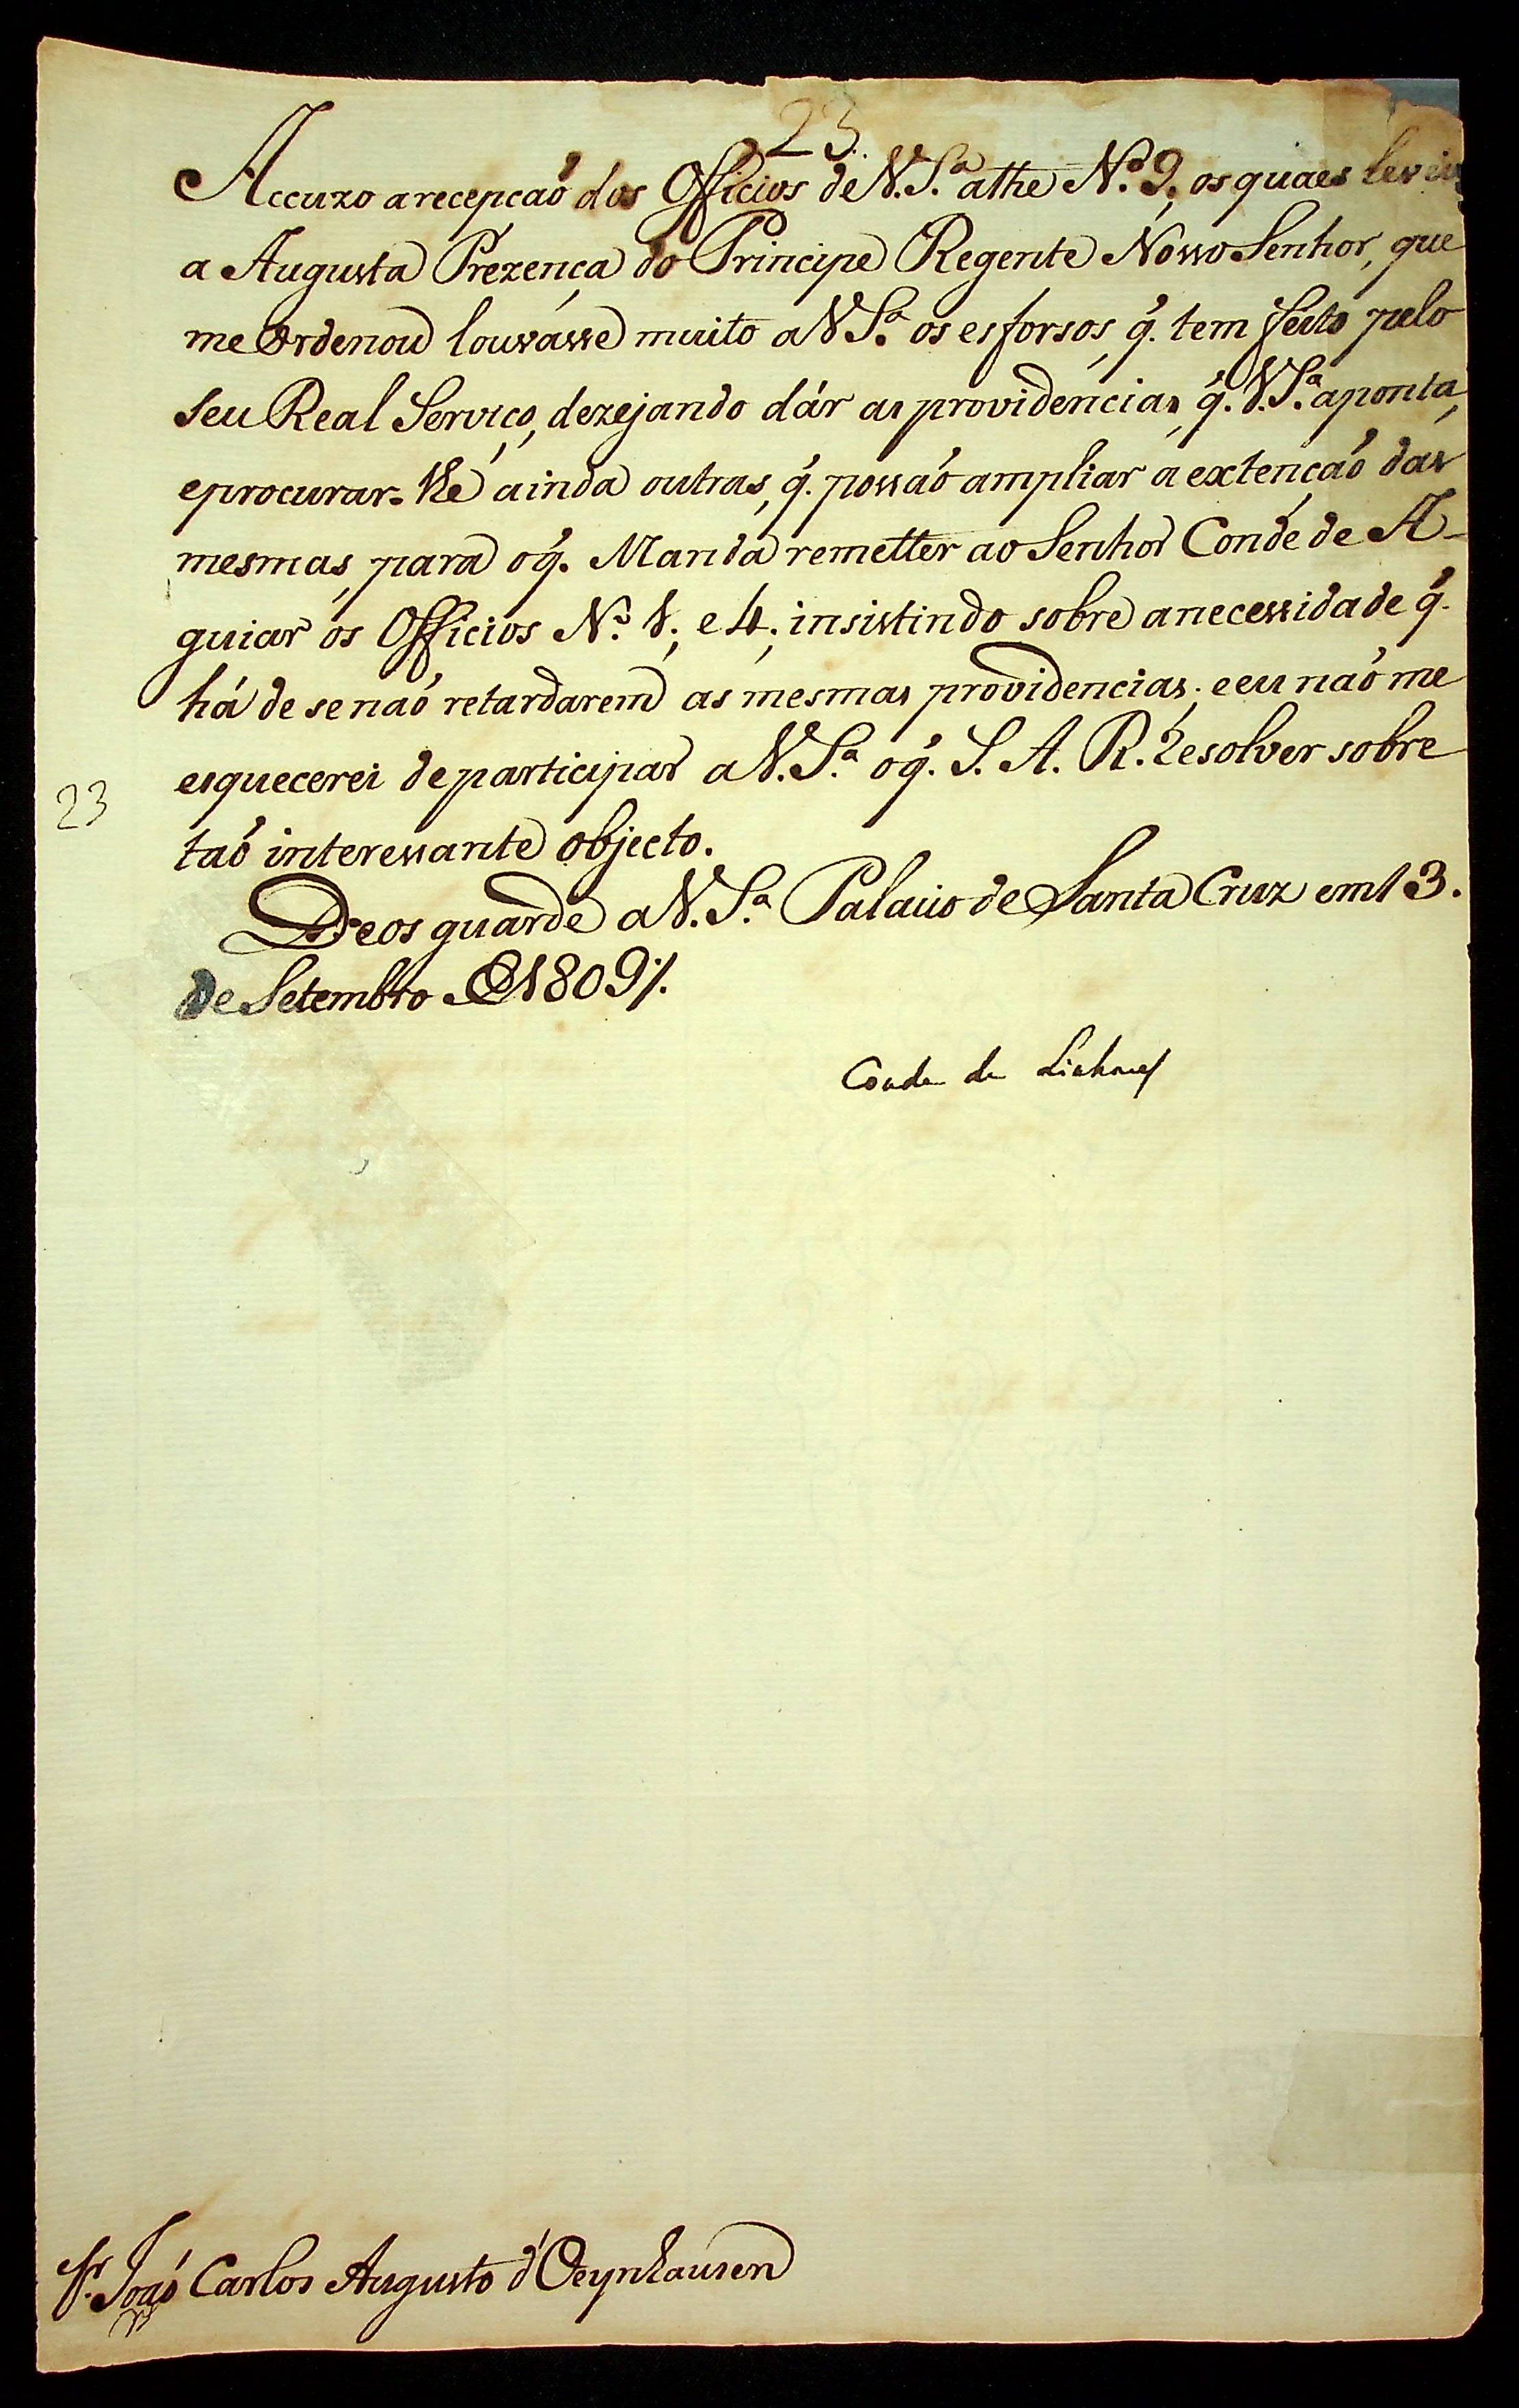 23.
Accuzo a recepçaõ dos Officios de V. S.ª athe N.º 9, os quaes
a Augusta Prezença do Principe Regente Nosso Senhor, que
me Ordenou louvásse muito a V. S.ª os esforsos, q̃. tem feito pelo
seu Real Serviço, dezejando dár as providencias, q̃. V. S.ª aponta,
e procurar-lhe ainda outras, q̃. possaõ ampliar a extençaõ das
mesmas, para o q̃. Manda remetter ao Senhor Conde de A-
guiar os Officios N.º 1, e 4; insistindo sobre a necessidade q̃.
há de se naõ retardarem as mesmas providencias; e eu naõ me
esquecerei de participar a V. S.ª o q̃. S. A. R. Resolver sobre
23
taõ interessante objecto.
Deos guarde a V. S.ª Palacio de Santa Cruz em 13.
de Setembro de 1809 ·/.
Conde de Linhares
S.r Joaõ Carlos Augusto d'Oeynhausen